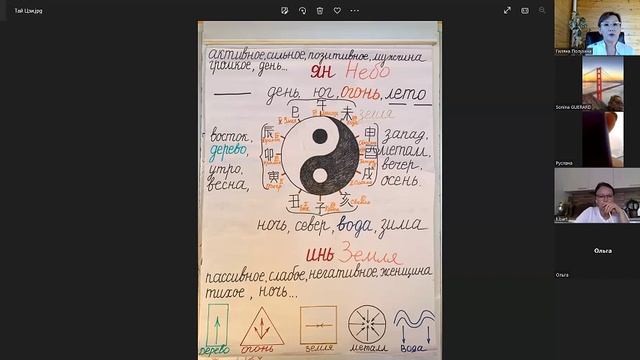 Тай Цзи.jpg
активное, сильное, позитивное, мужчина
громкое, день...
ЯН Небо
день, юг, огонь, лето
巳 午 未
земля
восток,
дерево,
утро,
весна,
辰
卯
寅
申
酉
戌
запад,
металл,
вечер,
осень.
丑 子 亥
ночь, север, вода, зима
ИНЬ Земля
пассивное, слабое, негативное, женщина
тихое, ночь...
дерево огонь земля металл вода
Галина Полухина
Sonina GUERARD
Руслана
Ольга
Ольга